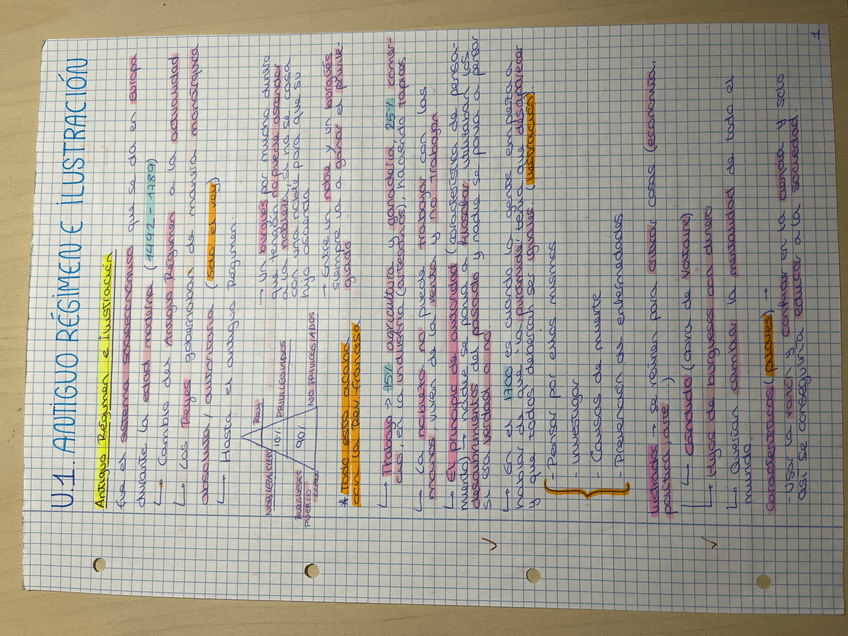 U.1. ANTIGUO RÉGIMEN E ILUSTRACIÓN
Antiguo Régimen e ilustración
Fue el sistema socioeconómico que se da en europa
durante la edad moderna (1492 - 1789)
↳ Cambio del Antiguo Régimen a la actualidad
↳ Los Reyes gobernaban de manera monárquica
absoluta / autoritaria (solo el rey)
↳ Hasta el antiguo Régimen.
REYES
NOBLEZA CLERO
10%
PRIVILEGIADOS
90%
NO PRIVILEGIADOS
BURGUESES
→ Un burgués por mucho dinero
que tenga no puede ascender
a la nobleza, si no se casa
con una noble para que su
hijo ascienda
→ Entre un noble y un burgués
siempre va a ganar el privile-
giado
* Todo esto acabó
con la Rev. francesa
↳ Trabajo → 75% agricultura y ganadería, 25% comer-
cio, en la industria (artesanos), haciendo tapices
↳ La nobleza no puede trabajar con las
manos, viven de la renta y no trabajan
↳ El principio de autoridad (característica de pensa-
miento), nadie se ponía a filosofar, utilizaban los
descubrimientos del pasado y nadie se ponía a pensar
si era verdad o no
↳ En el 1700 es cuando la gente empieza a
pensar que la ignorancia tenía que desaparecer
y que todos deberían ser iguales. (ilustración)
- Pensar por ellos mismos
- Investigar
- Causas de muerte
- Prevención de enfermedades
Ilustrados → se reúnen para criticar cosas (economía,
política, arte...)
↳ Cándido (obra de Voltaire)
↳ Hijos de burgueses con dinero
↳ Querían cambiar la mentalidad de todo el
mundo.
Características (pilares) →
- Usar la razón y confiar en la ciencia y solo
así se conseguiría educar a la sociedad
1